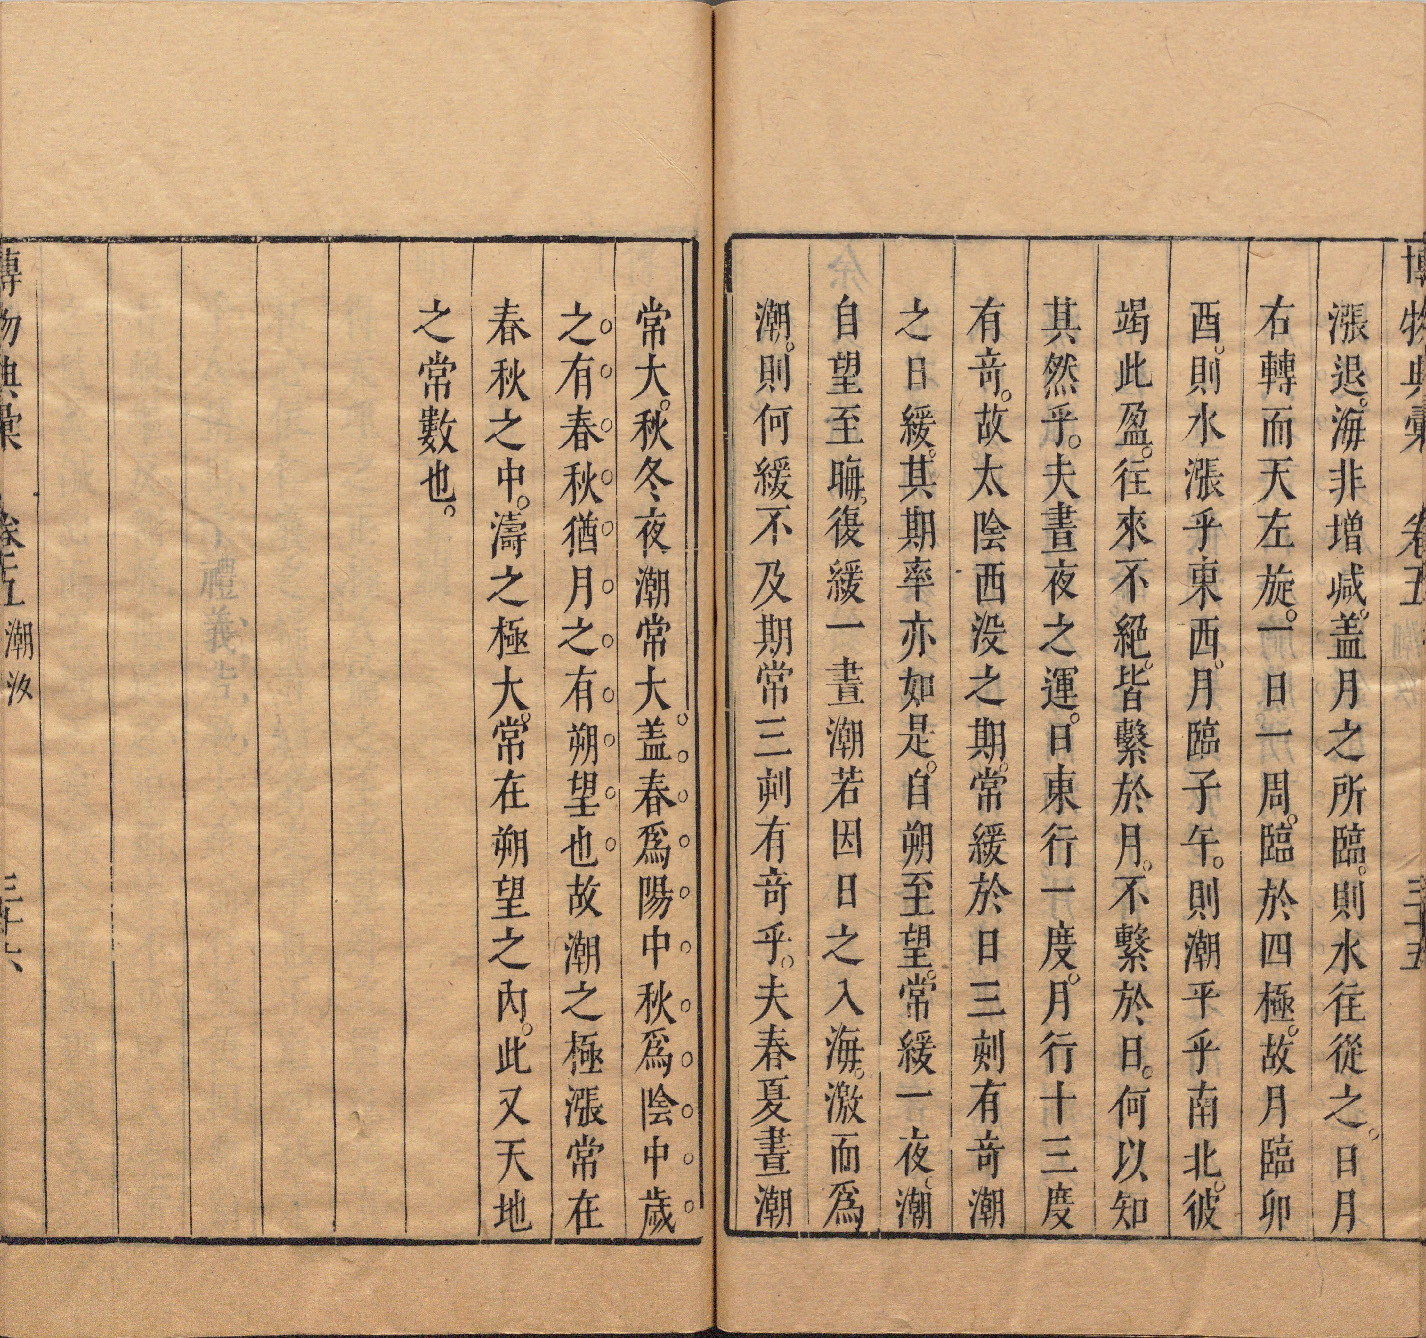 博物典彙 卷五 三十五
漲退。海非增減。蓋月之所臨。則水往從之。日月
右轉而天左旋。一日一周。臨於四極。故月臨卯
酉。則水漲乎東西。月臨子午。則潮平乎南北。彼
竭此盈。往來不絕。皆繫於月。不繫於日。何以知
其然乎。夫晝夜之運。日東行一度。月行十三度
有竒。故太陰西没之期。常緩於日三刻有竒潮
之日緩。其期率亦如是。自朔至望。常緩一夜潮
自望至晦。復緩一晝潮若因日之入海。激而爲
潮。則何緩不及期常三刻有竒乎。夫春夏晝潮
常大。秋冬夜潮常大。蓋春爲陽中秋爲陰中歲
之有春秋猶月之有朔望也故潮之極漲常在
春秋之中。濤之極大。常在朔望之內。此又天地
之常數也。
博物典彙 卷五 潮汐 三十六